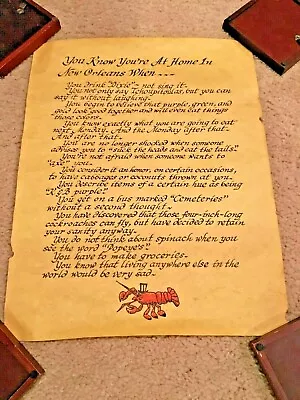 You Know You're At Home In
New Orleans When ---
You drink "Dixie" – not sing it.
You not only say Tchoupitoulas, but you can
say it without laughing.
You begin to believe that purple, green, and
gold look good together and will even eat things
those colors.
You know exactly what you are going to eat
next Monday. And the Monday after that.
And after that.
You are no longer shocked when someone
advises you to "suck the heads and eat the tails".
You're not afraid when someone wants to
"axe" you.
You consider it an honor, on certain occasions,
to have cabbages or coconuts thrown at you.
You describe items of a certain hue as being
"K&B purple."
You get on a bus marked "Cemeteries"
without a second thought.
You have discovered that those four-inch-long
cockroaches can fly, but have decided to retain
your sanity anyway.
You do not think about spinach when you
see the word "Popeyes."
You have to make groceries.
You know that living anywhere else in the
world would be very sad.